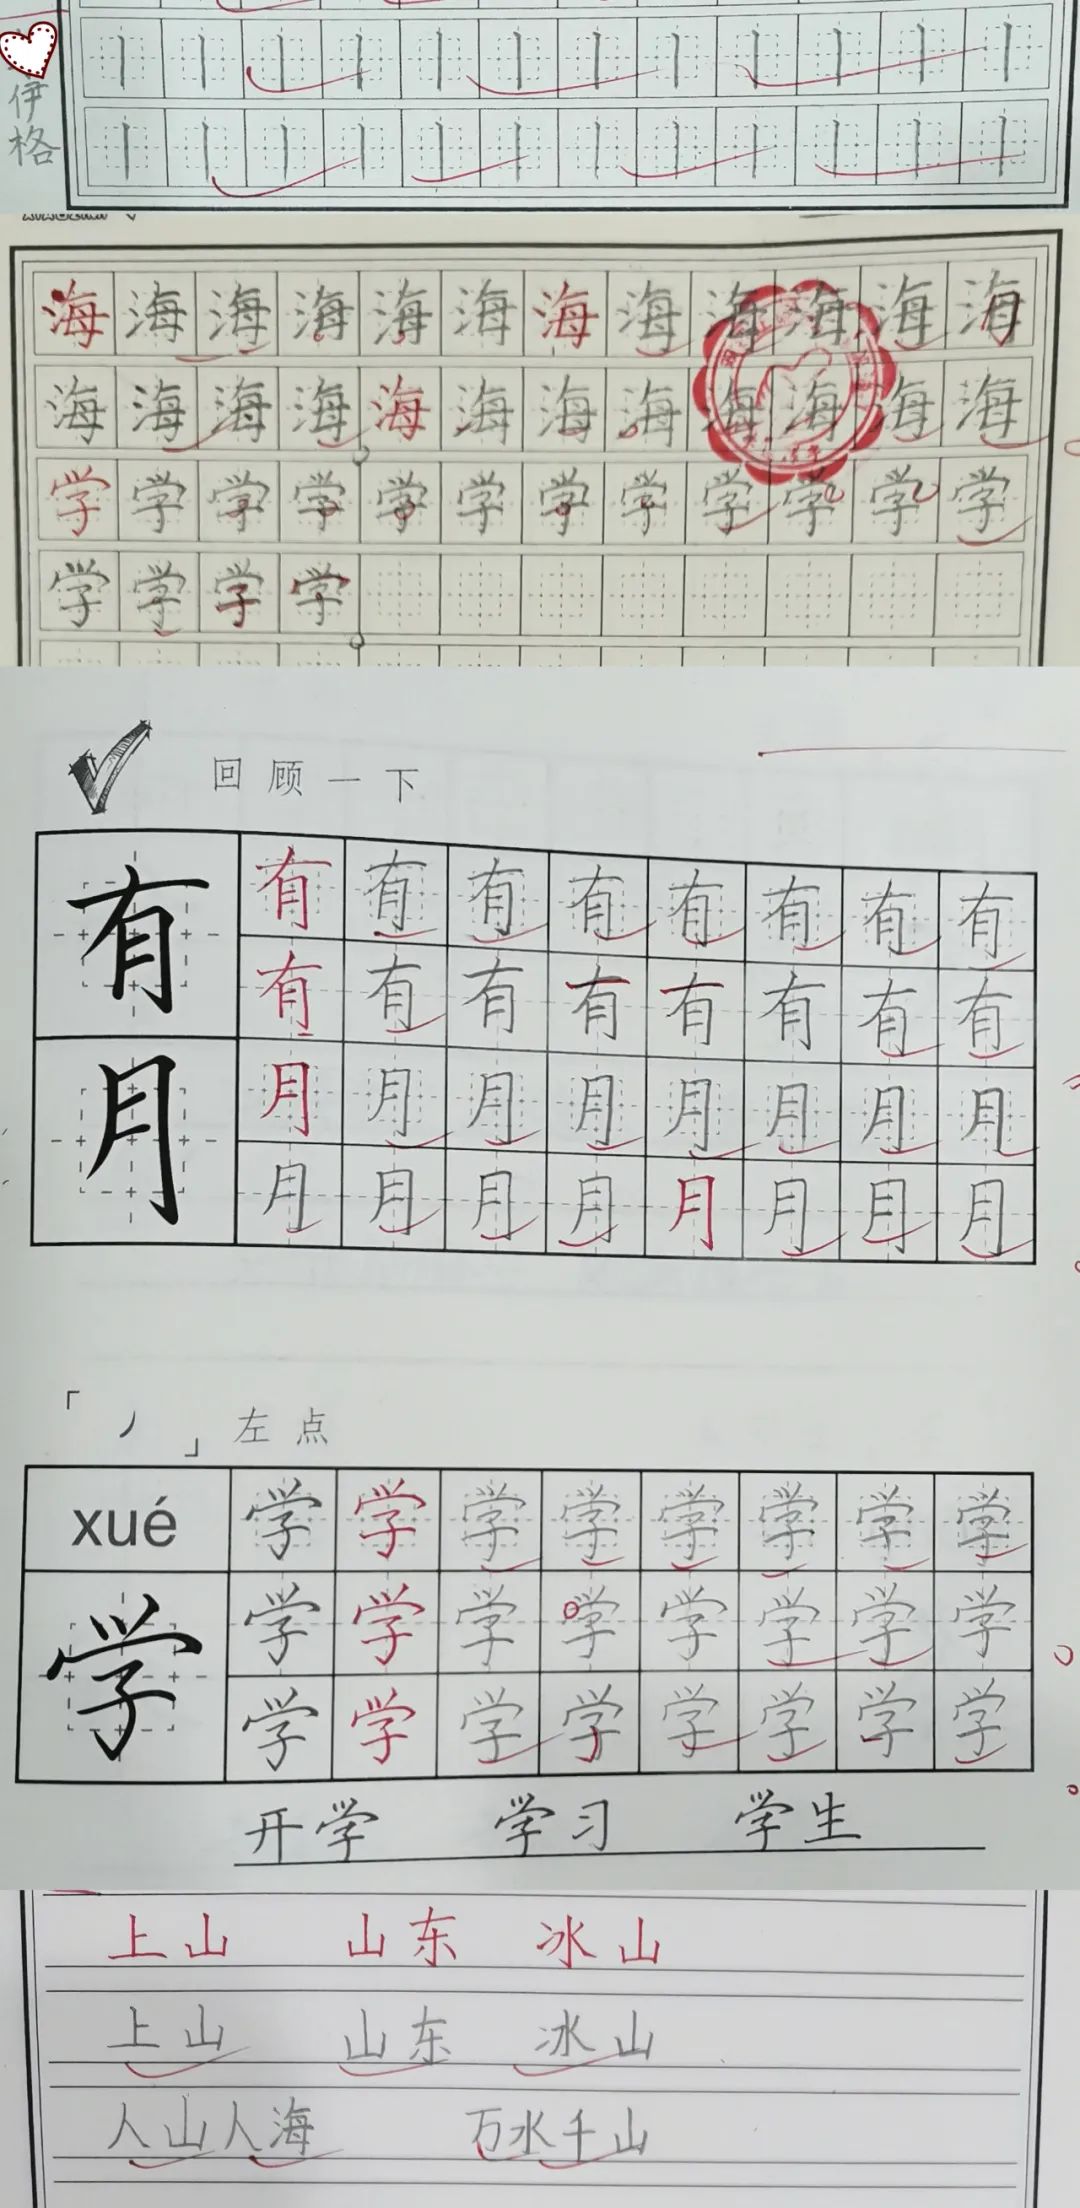 伊
格
丨 丨 丨 丨 丨 丨 丨 丨 丨 丨 丨 丨
丨 丨 丨 丨 丨 丨 丨 丨 丨 丨 丨 丨
海 海 海 海 海 海 海 海 海 海 海 海
海 海 海 海 海 海 海 海 海 海 海 海
学 学 学 学 学 学 学 学 学 学 学 学
学 学 学 学
回顾一下
有 有 有 有 有 有 有 有 有
有 有 有 有 有 有 有 有
月 月 月 月 月 月 月 月 月
月 月 月 月 月 月 月 月
「丿」左点
xué 学 学 学 学 学 学 学 学
学 学 学 学 学 学 学 学 学
学 学 学 学 学 学 学 学
开学 学习 学生
上山 山东 冰山
上山 山东 冰山
人山人海 万水千山